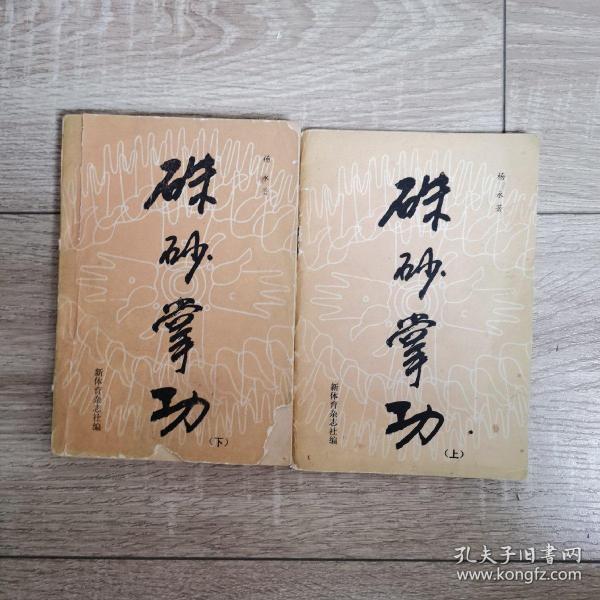 硃砂掌功
杨永著
新体育杂志社编
(下)
硃砂掌功
杨永著
新体育杂志社编
(上)
孔夫子旧書网
www.kongfz.com